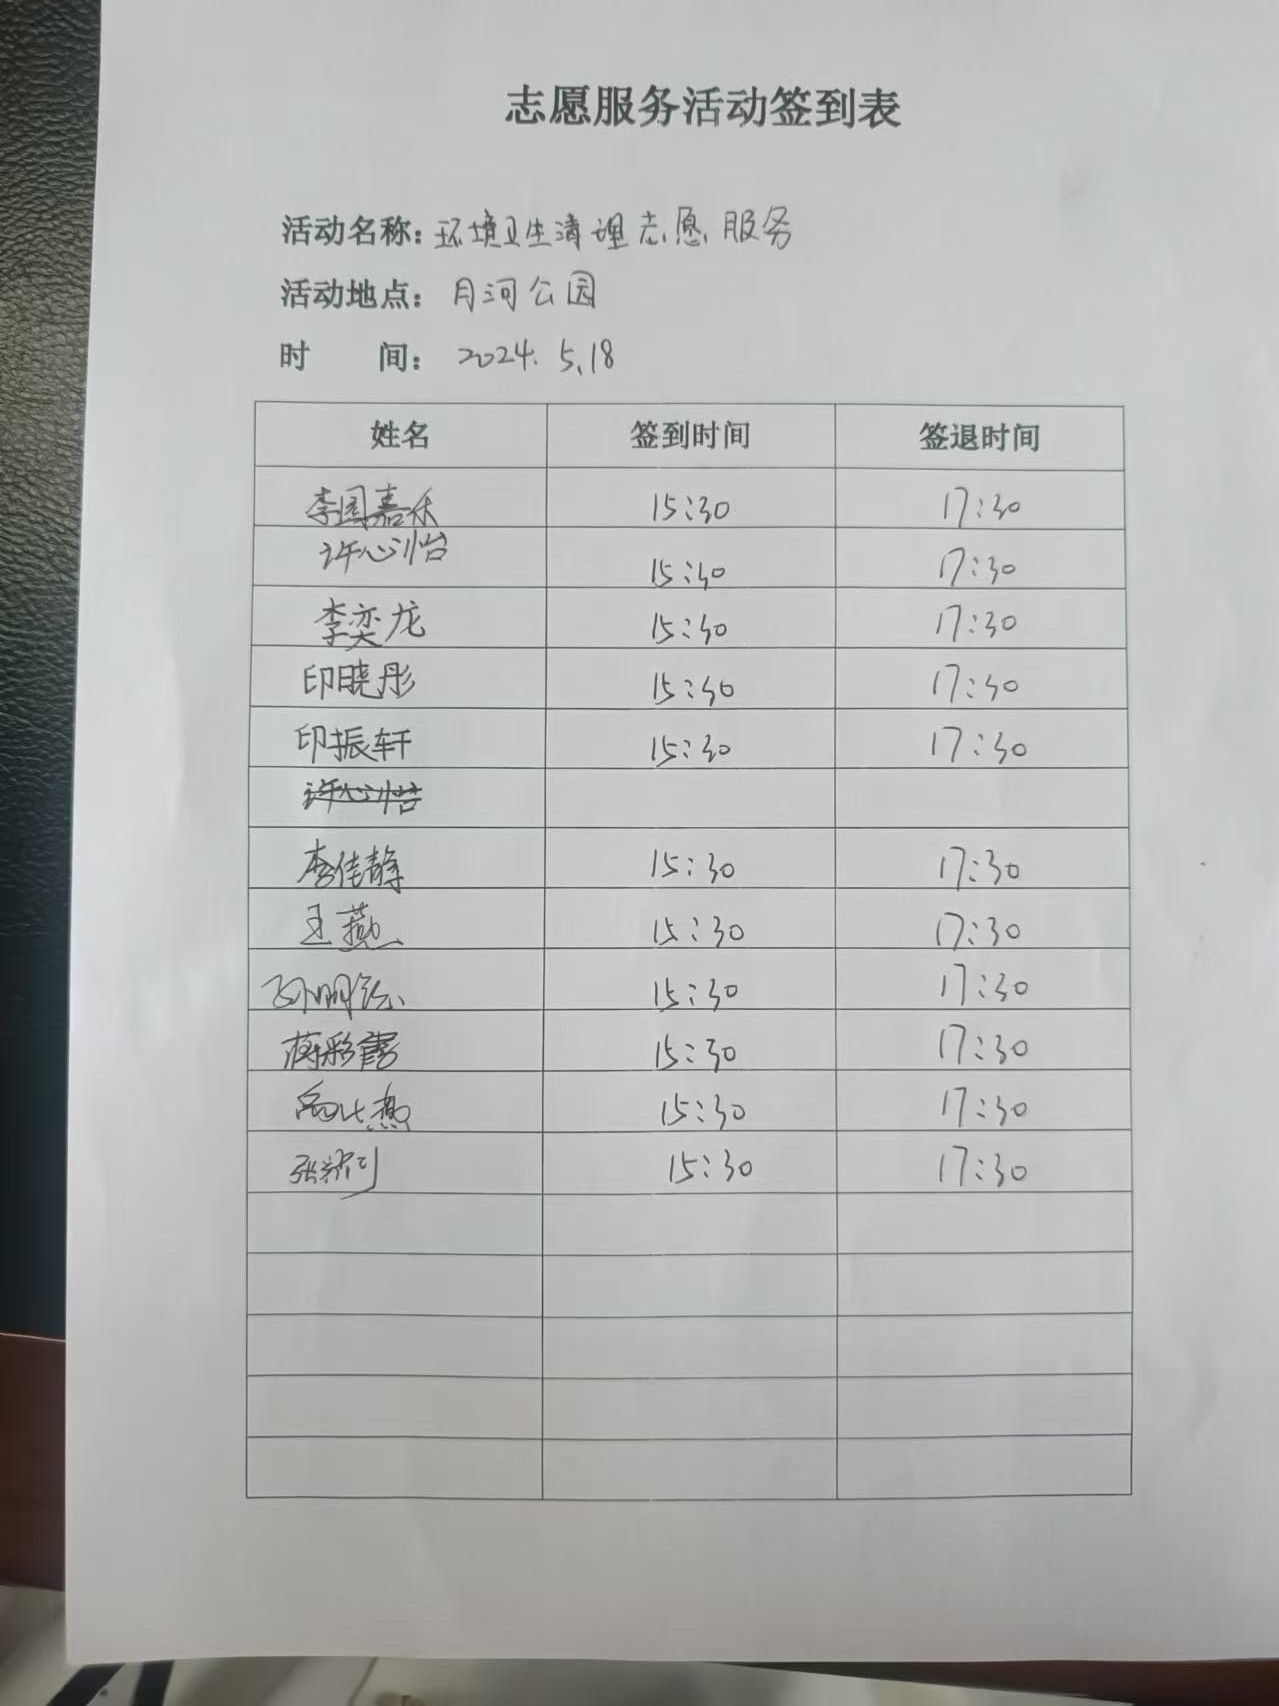 志愿服务活动签到表
活动名称：环境卫生清理志愿服务
活动地点：月河公园
时 间：2024.5.18
姓名 签到时间 签退时间
李国嘉乐 15:30 17:30
许心怡 15:30 17:30
李奕龙 15:30 17:30
印晓彤 15:30 17:30
印振轩 15:30 17:30
许心怡
李佳静 15:30 17:30
王燕 15:30 17:30
15:30 17:30
蒋彩霞 15:30 17:30
15:30 17:30
15:30 17:30